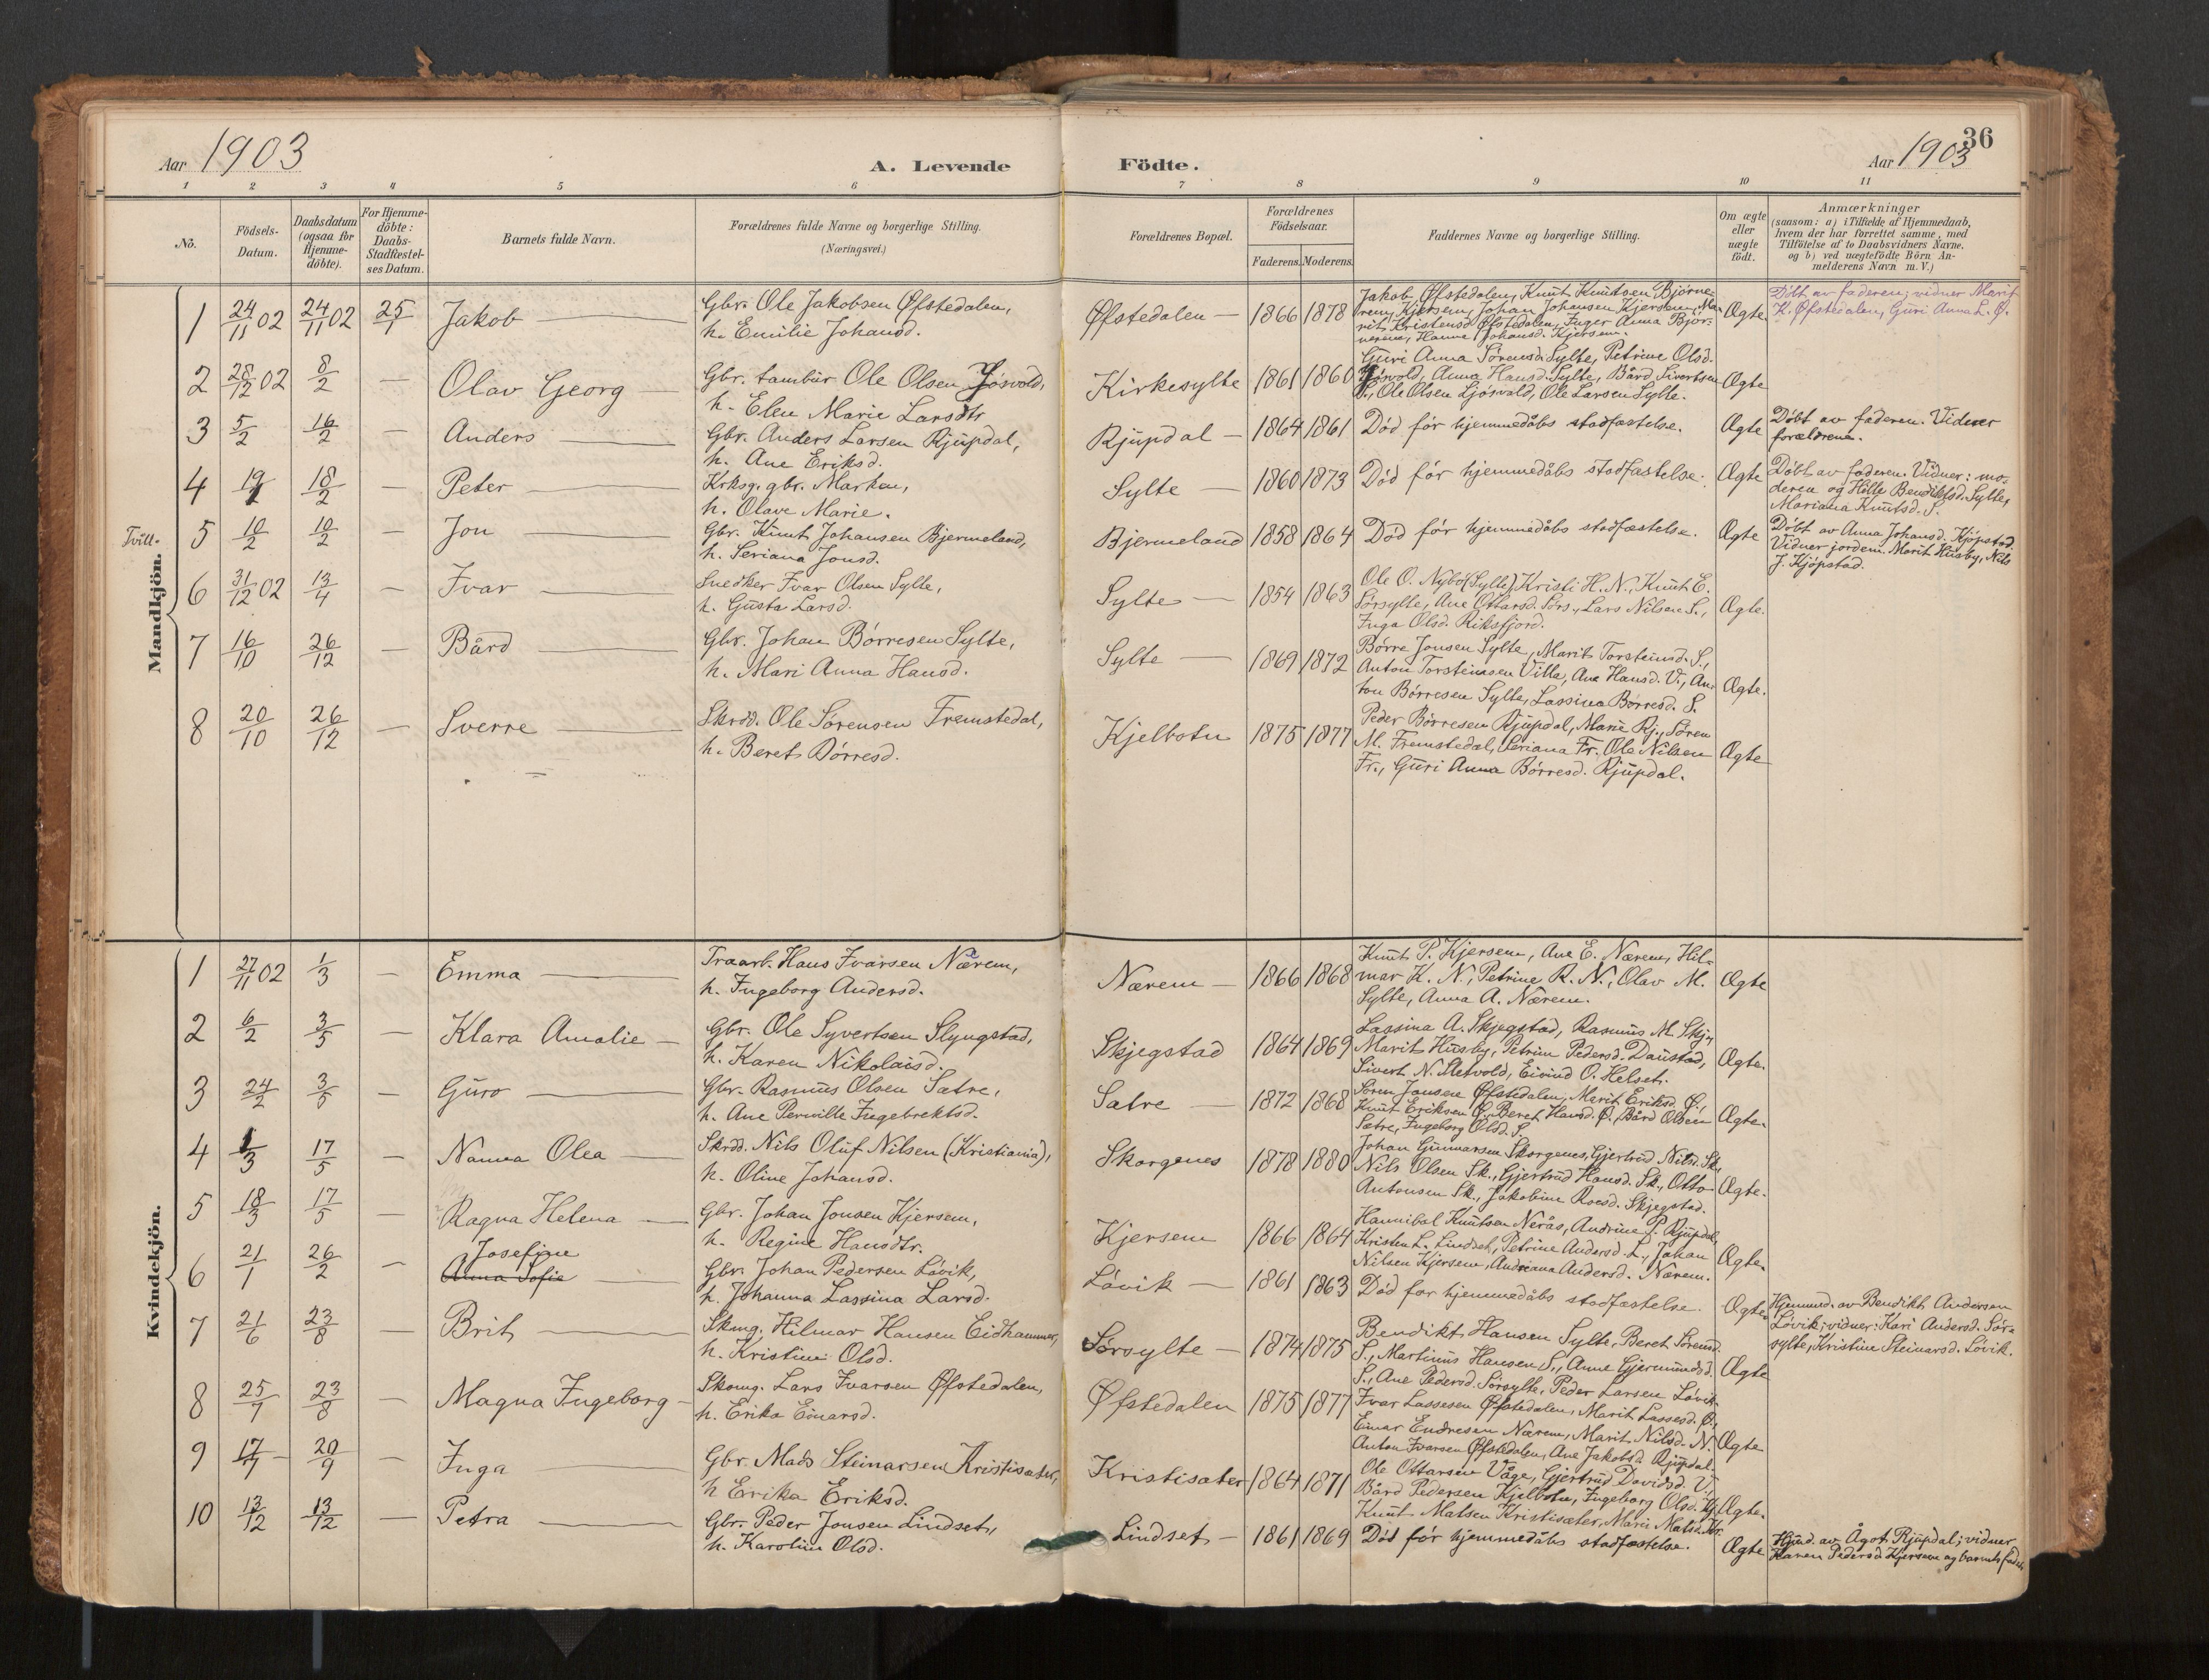 36
Aar 1903
A. Levende Födte.
Aar 1903
1 2 3 4 5 6 7 8 9 10 11
No.
Födsels-Datum.
Daabsdatum (ogsaa for Hjemme-döbte).
For Hjemme-döbte: Daabs-Stadfæstel-ses Datum.
Barnets fulde Navn.
Forældrenes fulde Navne og borgerlige Stilling.
(Næringsvei.)
Forældrenes Bopæl.
Forældrenes Födselsaar.
Faderens. Moderens.
Faddernes Navne og borgerlige Stilling.
Om ægte eller uægte födt.
Anmærkninger
(saasom: a) i Tilfælde af Hjemmedaab,
hvem der har forrettet samme, med
Tilföielse af to Daabsvidners Navne,
og b) ved uægtefödte Börn An-
melderens Navn m. V.)
Mandkjön.
1 24/11 02 24/11 02 25/1 Jakob
Gbr. Ole Jakobsen Øfstedalen,
h. Emilie Johansd.
Øfstedalen — 1866 1878
Jakob Øfstedalen, Knut Knutsen Bjørne-
rem, Kjersem, Johan Johansen Kjersem, Ma-
rit Kristensd. Øfstedalen, Inger Anna Bjør-
nerem, Hanne Johansd. Kjersem.
Ægte.
Döbt av faderen; vidner Marit
K. Øfstedalen, Guri Anna L. Ø.
2 28/12 02 8/2 — Olav Georg
Gbr. tambur Ole Olsen Ljósvold,
h. Elen Marie Larsdtr
Kirkesylte 1861 1860
Guri Anna Sørensd. Sylte, Petrine Olsd.
Ljósvold, Anna Hansd. Sylte, Bård Sivertsen
S., Ole Olsen Ljósvald, Ole Larsen Sylte.
Ægte
3 5/2 16/2 — Anders
Gbr. Anders Larsen Rjupdal,
h. Ane Eriksd.
Rjupdal — 1864 1861
Död för hjemmedåbs stadfæstelse.
Ægte
Döbt av faderen. Vidner
forældrene.
4 18/2 — Peter
Krksg. gbr. Marken,
h. Olave Marie.
Sylte — 1860 1873
Död för hjemmedåbs stadfæstelse.
Ægte
Döbt av faderen. Vidner: mo-
deren og Hilte Bendiktsd. Sylte,
Mariana Knutsd. S.
Tvill.
5 10/2 10/2 — Jon
Gbr. Knut Johansen Bjermeland,
h. Seriana Jonsd.
Bjermeland 1858 1864
Död för hjemmedåbs stadfæstelse.
Ægte
Döbt av Anna Johansd. Kjöpstad.
Vidner jordem. Marit Husby, Nils
J. Kjöpstad.
6 31/12 02 13/4 — Ivar
Snedker Ivar Olsen Sylte,
h. Gusta Larsd.
Sylte — 1854 1863
Ole O. Nybö (Sylte), Kristi H. N., Knut E.
Sörsylte, Ane Ottarsd. Sörs., Lars Nilsen S.,
Inga Olsd. Riksfjord.
Ægte.
7 16/10 26/12 — Bård
Gbr. Johan Börresen Sylte,
h. Mari Anna Hansd.
Sylte — 1869 1872
Börre Jonsen Sylte, Marit Torsteinsd. S.,
Anton Torsteinsen Villa, Ane Hansd. V., An-
ton Börresen Sylte, Lassina Börresd. S.
Ægte.
8 20/10 26/12 — Sverre
Skrdd. Ole Sörensen Fremstedal,
h. Beret Börresd.
Kjelbotn 1875 1877
Peder Börresen Rjupdal, Marie Rj., Sören
M. Fremstedal, Seriana Fr. Ole Nilsen
Fr., Guri Anna Börresd. Rjupdal.
Ægte
Kvindekjön.
1 27/11 02 1/3 — Emma
Traarb. Hans Ivarsen Nærem,
h. Ingeborg Andersd.
Nærem — 1866 1868
Knut P. Kjersem, Ane E. Nærem, Hil-
mar K. N., Petrine R. N., Olav M.
Sylte, Anna A. Nærem.
Ægte
2 6/2 3/5 — Klara Amalie —
Gbr. Ole Syvertsen Slyngstad,
h. Karen Nikolaisd.
Skjegstad 1864 1869
Lassina A. Skjegstad, Rasmus M. Skj.,
Marit Husby, Petrine Pedersd. Daustad,
Sivert N. Sletvold, Eivind O. Helset.
Ægte.
3 24/2 3/5 — Guro
Gbr. Rasmus Olsen Sætre,
h. Ane Pernille Ingebrektsd.
Sætre — 1872 1868
Sören Jonsen Øfstedalen, Marit Eriksd. Ø.,
Knut Eriksen Ø., Beret Hansd. Ø., Bård Olsen
Sætre, Ingeborg Olsd. S.
Ægte.
4 1/3 17/5 — Nanna Olea
Skrdd. Nils Oluf Nilsen (Kristiania),
h. Oline Johansd.
Skorgenes 1878 1880
Johan Gunnarsen Skorgenes, Gjertrud Nilsd. Sk.,
Nils Olsen Sk., Gjertrud Hansd. Sk., Otto
Antonsen Sk., Jakobine Roesd. Skjegstad.
Ægte.
5 18/3 17/5 — Ragna Helena
Gbr. Johan Jonsen Kjersem,
h. Regine Hansdtr.
Kjersem 1866 1864
Hannibal Knutsen Nerås, Andrine P. Rjupdal,
Kristen L. Lindset, Petrine Andersd. L., Johan
Nilsen Kjersem, Andriana Andersd. Nærem.
Ægte.
6 21/1 26/2 — Josefine
Anna Sofie
Gbr. Johan Pedersen Lóvik,
h. Johanna Lassina Larsd.
Lóvik — 1861 1863
Död for hjemmedåbs stadfæstelse.
Ægte
Hjemmed. av Bendikt Andersen
Lövik; vidner: Kari Andersd. Sör-
sylte, Kristine Steinarsd. Lövik.
7 21/6 23/8 — Brit
Skmg. Hilmar Hansen Eidhammer,
h. Kristine Olsd.
Sörsylte — 1874 1875
Bendikt Hansen Sylte, Beret Sörensd.
S., Martinus Hansen S., Anne Gjermundsd.
S., Ane Pedersd. Sörsylte, Peder Larsen Lóvik
Ægte
8 25/7 23/8 — Magna Ingeborg —
Skomg. Lars Ivarsen Øfstedalen,
h. Erika Einarsd.
Øfstedalen 1875 1877
Ivar Lassesen Øfstedalen, Marit Lassesd. Ø.,
Einar Endresen Nærem, Marit Nilsd. N.
Anton Ivarsen Øfstedalen, Ane Jakobsd. Rjupdal.
Ægte
9 17/7 20/9 — Inga
Gbr. Mads Steinarsen Kristisæter,
h Erika Eriksd.
Kristisæter 1864 1871
Ole Ottarsen Våge, Gjertrud Davidsd. V.,
Bård Pedersen Kjelbotn, Ingeborg Olsd. Kj.
Knut Matsen Kristisæter, Mari Matsd. Kr.
Ægte.
10 13/12 13/12 — Petra
Gbr. Peder Jonsen Lindset,
h. Karoline Olsd.
Lindset — 1861 1869
Död för hjemmedåbs stadfæstelse.
Ægte
Hjmd. av Ågot Rjupdal; vidner
Karen Pedersd. Kjersem og barnets fader.